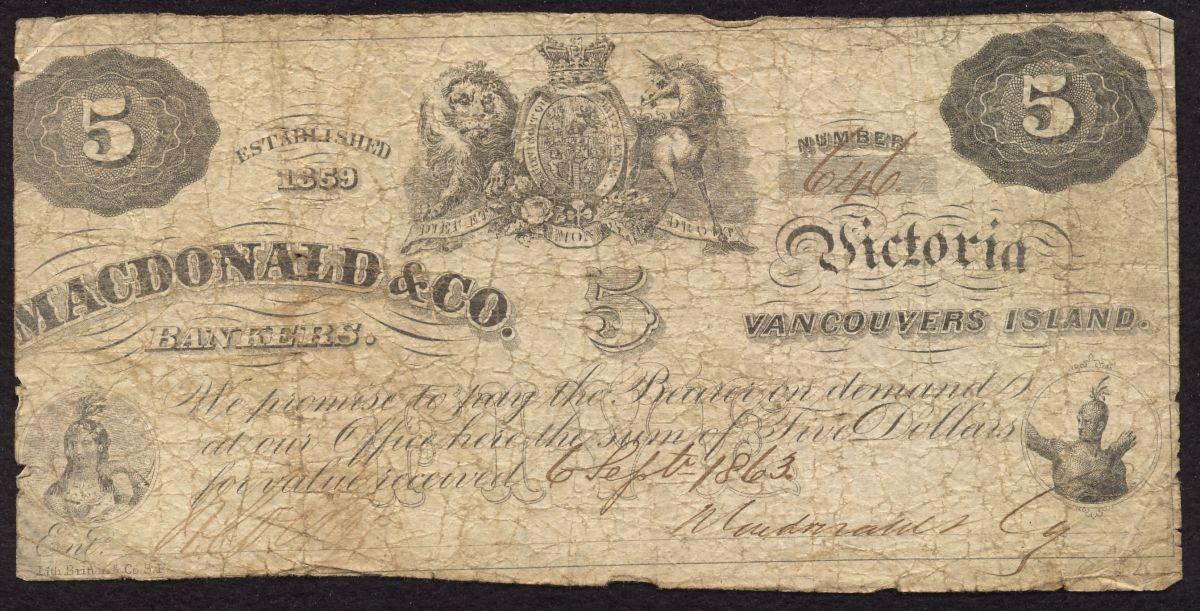 5
5
ESTABLISHED
1859
NUMBER
646
DIEU ET MON DROIT
Victoria
MACDONALD & CO.
5
VANCOUVERS ISLAND.
BANKERS.
We promise to pay the Bearer on demand
at our Office here the sum of Five Dollars
for value received 6 Sept 1863
Macdonald & Co
Ent.
Lith Britton & Co S.F.